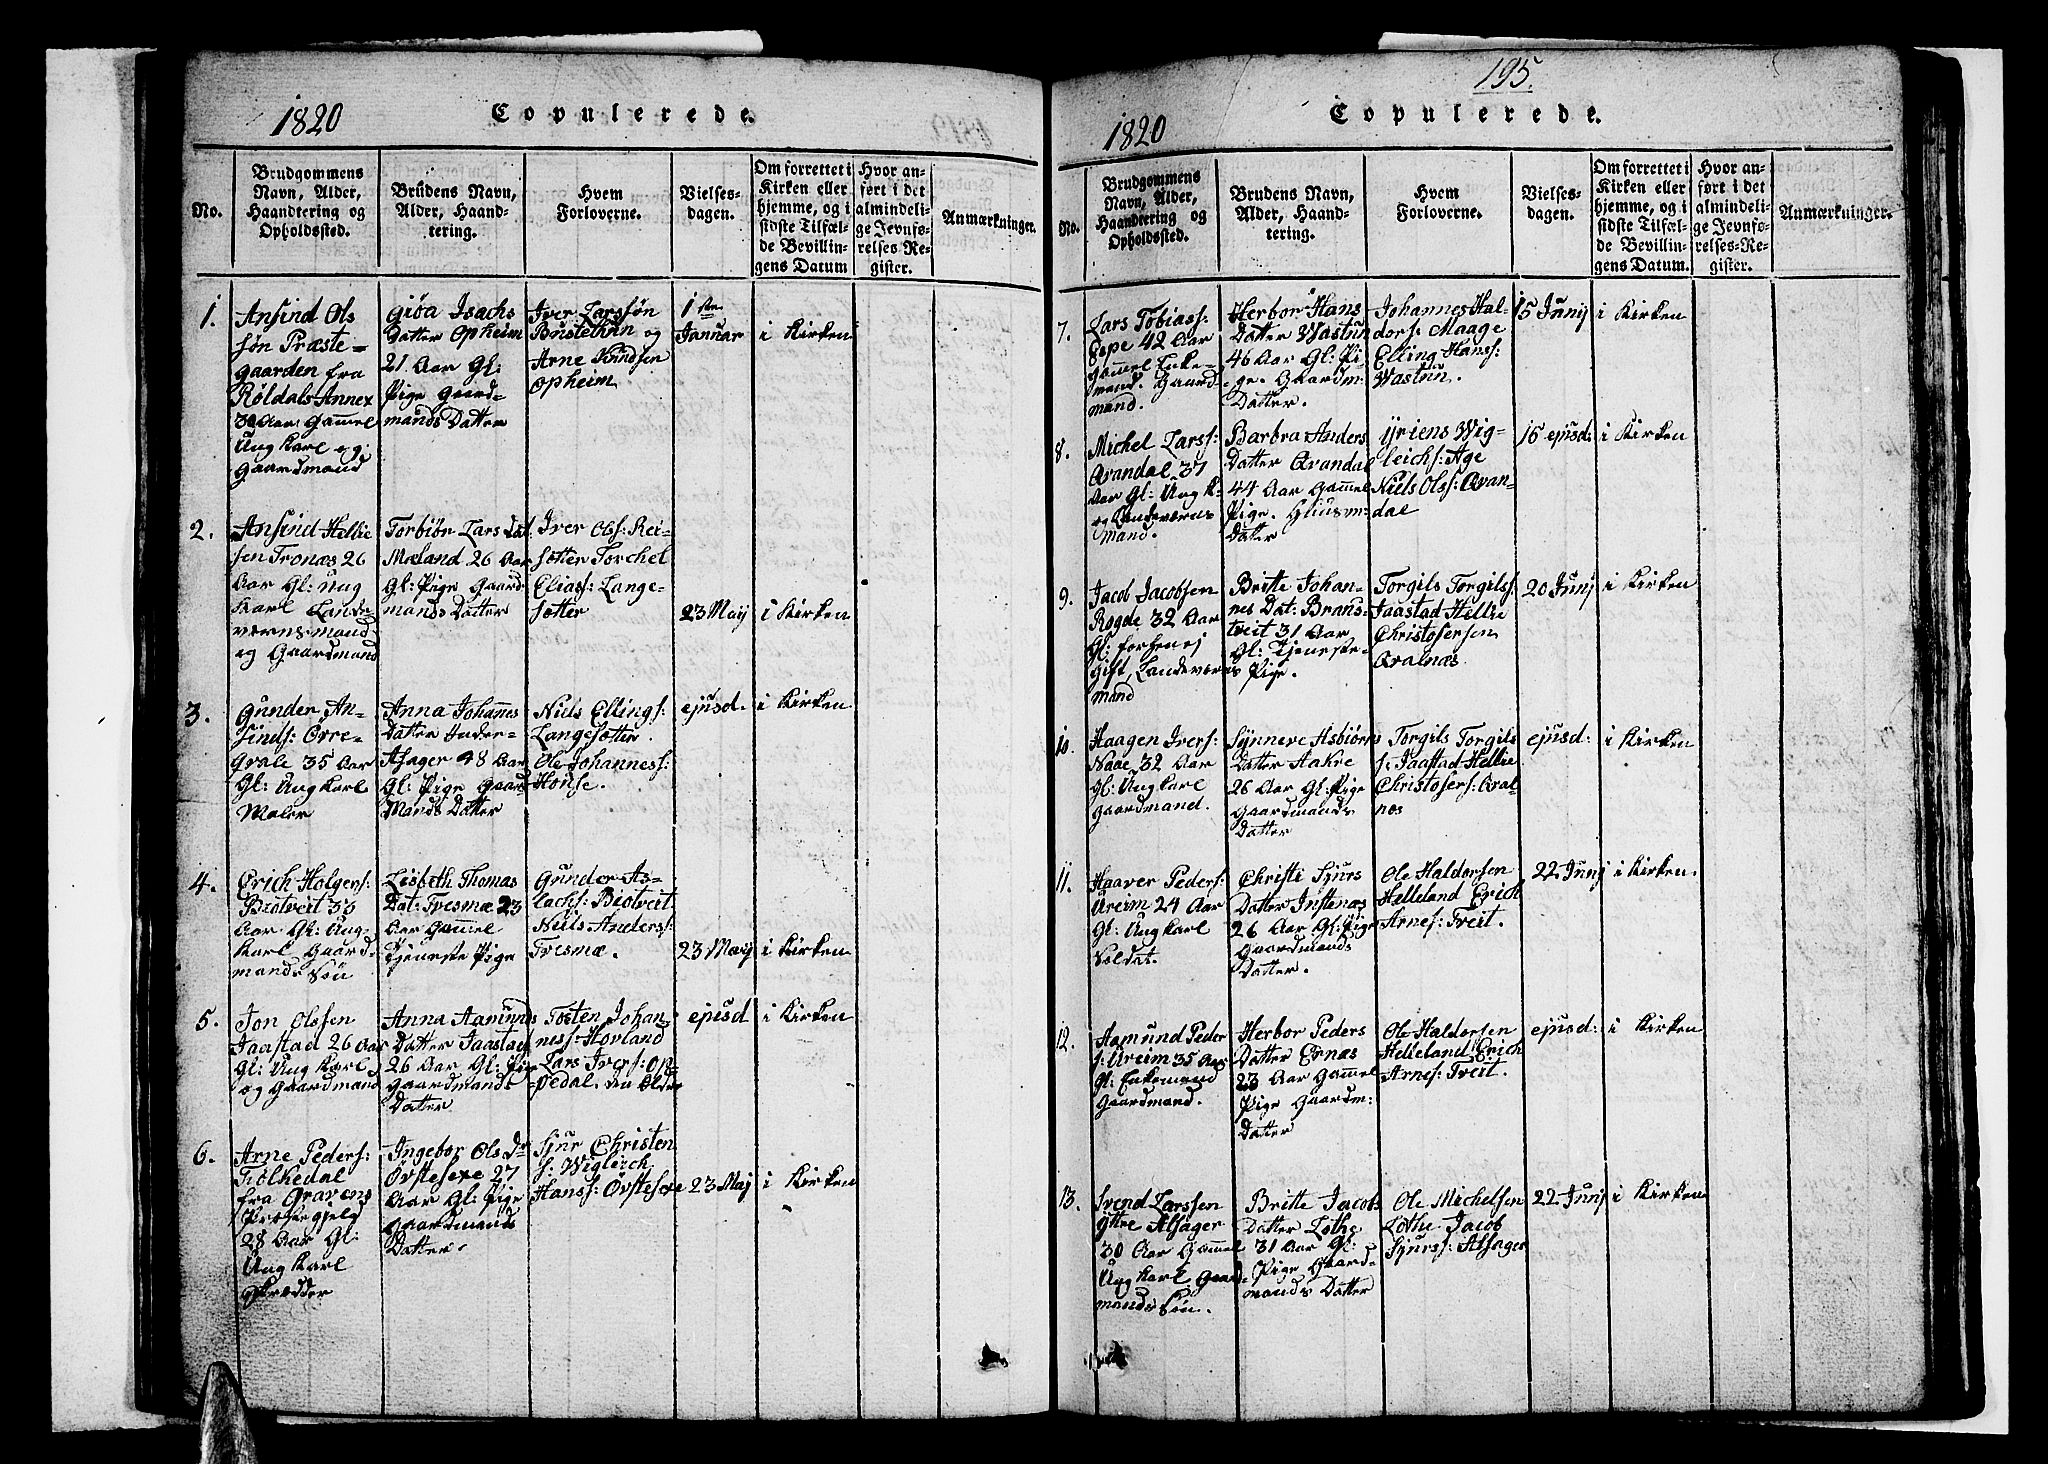 1820
Copulerede.
No.
Brudgommens
Navn, Alder,
Haandtering og
Opholdssted.
Brudens Navn,
Alder, Haand-
tering.
Hvem
Forloverne.
Vielses-
dagen.
Om forrettet i
Kirken eller
hjemme, og i
sidste Tilfæl-
de Bevillin-
gens Datum
Hvor an-
ført i det
almindeli-
ge Jevnfø-
relses-Re-
gister.
Anmærkninger.
1.
Ansind Ols
søn Præste-
gaarden fra
Røldals Annex
30 Aar Gammel
Ung Karl og
Gaardmand
Giøa Isachs
Datter Opheim
21 Aar Gl:
Pige Gaard-
mands Datter
Iver Larssøn
Bustethun og
Arne Knudsen
Opheim
1ste
Januar
i Kirken
2.
Ansind Hellie
sen Tronæs 26
Aar Gl: Ung
Karl Lande
værnsmand
og Gaardmand
Torbiør Lars Dat
Mæland 26 Aar
Gl: Pige Gaard
mands Datter
Iver Ols: Rei-
sætter Torchel
Elias: Lange-
sætter
23 May
i Kirken
3.
Gunder An-
sinds: Orre-
grale 35 Aar
Gl: Ung Karl
Maler
Anna Johannes
Datter Inder-
Alsager 48 Aar
Gl: Pige Gaar
Mands Datter
Niels Ellings:
Langesætter.
Ole Johanness:
Honse.
ejusd.
i Kirken
4.
Erich Holgers:
Brotveit 33
Aar Gl: Ung-
Karl Gaard
mands Søn
Lisbeth Thomas
Dat: Tvesmæ 23
Aar Gammel
Tjeneste Pige
Gunder As-
lachs: Biotveit
Niels Anders:
Tvesmæ.
23 May
i Kirken
5.
Jon Olssen
Jaastad 26 Aar
Gl: Ung Karl
og Gaardmand
Anna Aamunds
Datter Jaastad
26 Aar Gl: Pige
Gaardmands
Datter
Tosten Johan
ness: Hovland
Lars Ivers: Op-
pedal. den Older
ejusd
i Kirken
6.
Arne Peders:
Tiolkedal
fra Gravens
Præstegjeld
28 Aar Gl:
Ung Karl
Skrædder
Ingebor Ols Dr
Øvstesexe 27
Aar Gl: Pige
Gaardmands
Datter.
Sjur Christen
s: Wiglerch
Hanss: Øvstesexe
23 Maj
i Kirken
195.
1820
Copulerede.
No.
Brudgommens
Navn, Alder,
Haandtering og
Opholdssted.
Brudens Navn,
Alder, Haand-
tering.
Hvem
Forloverne.
Vielses-
dagen.
Om forrettet i
Kirken eller
hjemme, og i
sidste Tilfæl-
de Bevillin-
gens Datum.
Hvor an-
ført i det
almindeli-
ge Jevnfø-
relses-Re-
gister.
Anmærkninger.
7.
Lars Tobiass:
Pope 42 Aar
Gammel Enke-
mand. Gaard-
mand.
Herbor Hans
Datter Wastun
46 Aar Gl: Pi-
ge. Gaardm
Datter.
Johannes Hal-
dors: Maage
Elling Hans:
Wastun.
15 Junij
i Kirken
8.
Michel Larss:
Qvandal 37
Aar Gl: Ung K.
og Landeværns
mand.
Barbra Anders
Datter Qvandal
44 Aar Gammel
Pige. Huusm-
Datter
Yriens Wig-
leichs: Age
Niels Ols: Qvan-
dal
16 ejusd:
i Kirken
9.
Jacob Jacobsen
Rogde 32 Aar
Gl: forhen ej
Gift, Landeværns
mand
Britte Johan-
nes Dat: Brans-
tveit 31 Aar
Gl: Tjeneste-
Pige.
Torgils Torgilss:
Jaastad Hellie
Christofersen
Qvalnæs
20 Junij
i Kirken
10.
Haagen Ivers:
Naae 32 Aar
Gl: Ung Karl
Gaardmand.
Synneve Asbiørns
Datter Aakre
26 Aar Gl: Pige
Gaardmands
Datter
Torgils Torgils
s: Jaastad Hellie
Christofers: Qval-
næs
ejusd:
i Kirken
11.
Haaver Peders:
Ureim 24 Aar
Gl: Ung Karl
Soldat.
Christi Sjurs
Datter Instenæs
26 Aar Gl: Pige
Gaardmands
Datter.
Ole Haldorsen
Helleland Erich
Arnes: Tveit.
22 Junij
i Kirken.
12.
Aamund Peder
s: Ureim 35 Aar
Gl: Enkemand
Gaardmand.
Herbor Peders
Datter Ernæs
23 Aar Gammel
Pige Gaardm:
Datter
Ole Haldorsen
Helleland Erich
Arnes: Tveit.
ejusd:
i Kirken
13.
Svend Larssen
Yttre Alsager
30 Aar Gammel
Ung Karl Gaard-
mands Søn.
Britte Jacobs
Datter Lothe
31 Aar Gl:
Pige Gaard-
mands Datter
Ole Michelsen
Lothe Jacob
Sjurs: Alsager
22 Junij
i Kirken